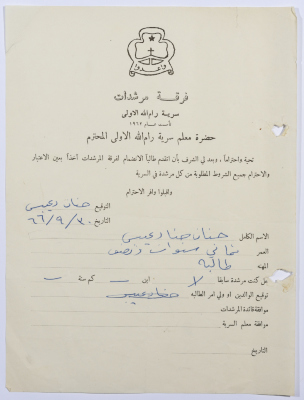 واعدوا
فرقة مرشدات
سرية رام الله الاولى
تأست عام ١٩٦٢
حضرة معلم سرية رام الله الاولى المحترم
تحية واحتراما ، وبعد لي الشرف بأن اتقدم طالباً الانضمام لفرقة المرشدات آخذاً بعين الاعتبار
والاحترام جميع الشروط المطلوبة من كل مرشدة في السرية
واقبلوا وافر الاحترام
التوقيع حنان دعيبس
التاريخ ٦٦/٩/٣٠
الاسم الكامل حنان حنا دعيبس
العمر ثماني سنوات ونصف
المهنه طالبة
هل كنت مرشدة سابقا لا اين – كم سنة –
توقيع الوالدين او ولي امر الطالبه حنا دعيبس
موافقة قائدة المرشدات
موافقة معلم السرية
التاريخ